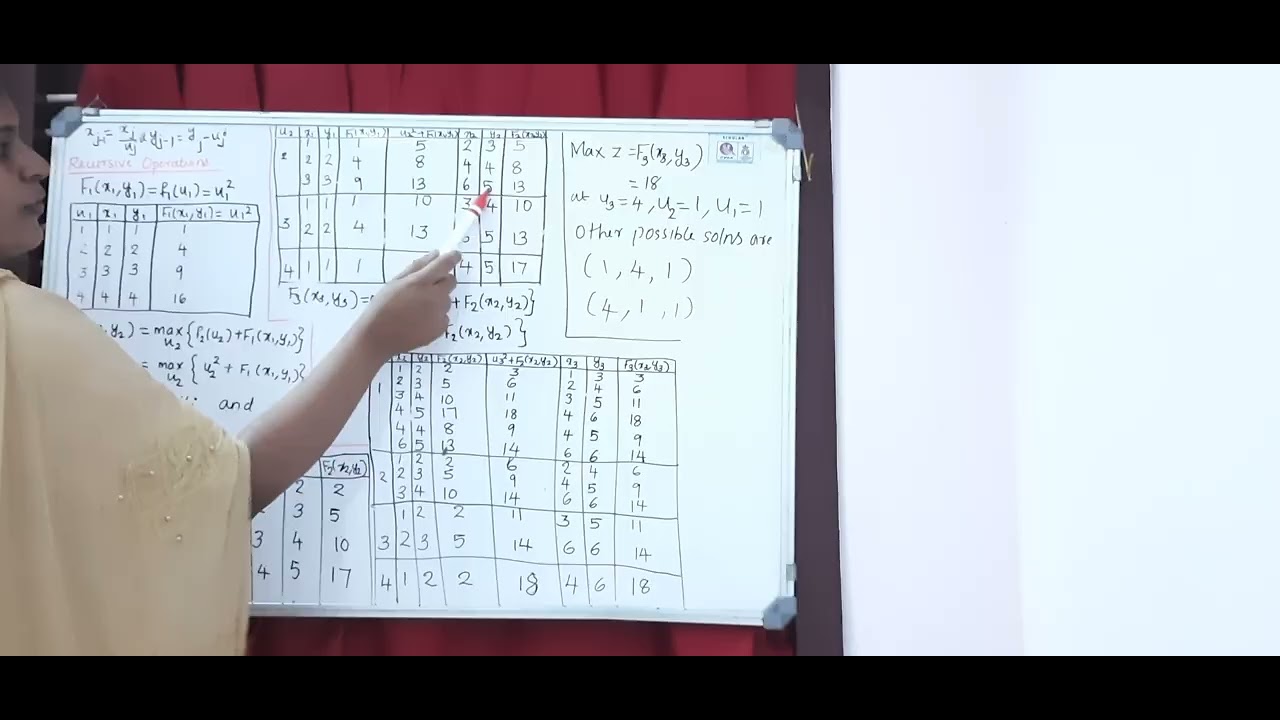 x_{j-1} = x_j/u_j & y_{j-1} = y_j - u_j
Recursive Operations
F1(x1,y1) = f1(u1) = u1²
u1 x1 y1 F1(x1,y1) = u1²
1 1 1 1
2 2 2 4
3 3 3 9
4 4 4 16
y2) = max u2 {f2(u2) + F1(x1,y1)}
= max u2 {u2² + F1(x1,y1)}
and
F2(x2,y2)
2 2
3 5
3 4 10
4 5 17
u2 x1 y1 F1(x1,y1) u2² + F1(x1,y1) x2 y2 F2(x2,y2)
2 1 1 1 5 2 3 5
2 2 4 8 4 4 8
3 3 9 13 6 5 13
3 1 1 1 10 3 4 10
2 2 4 13 5 13
4 1 1 1 4 5 17
F3(x3,y3) = + F2(x2,y2)}
F2(x2,y2)}
x2 y2 F2(x2,y2) u3² + F2(x2,y2) x3 y3 F3(x3,y3)
1 1 2 2 3 1 3 3
2 3 5 6 2 4 6
3 4 10 11 3 5 11
4 5 17 18 4 6 18
4 4 8 9 4 5 9
6 5 13 14 6 6 14
2 1 2 2 6 2 4 6
2 3 5 9 4 5 9
3 4 10 14 6 6 14
3 1 2 2 11 3 5 11
2 3 5 14 6 6 14
4 1 2 2 18 4 6 18
Max z = F3(x3,y3)
= 18
at u3 = 4, u2 = 1, u1 = 1
Other possible solns are
(1, 4, 1)
(4, 1, 1)